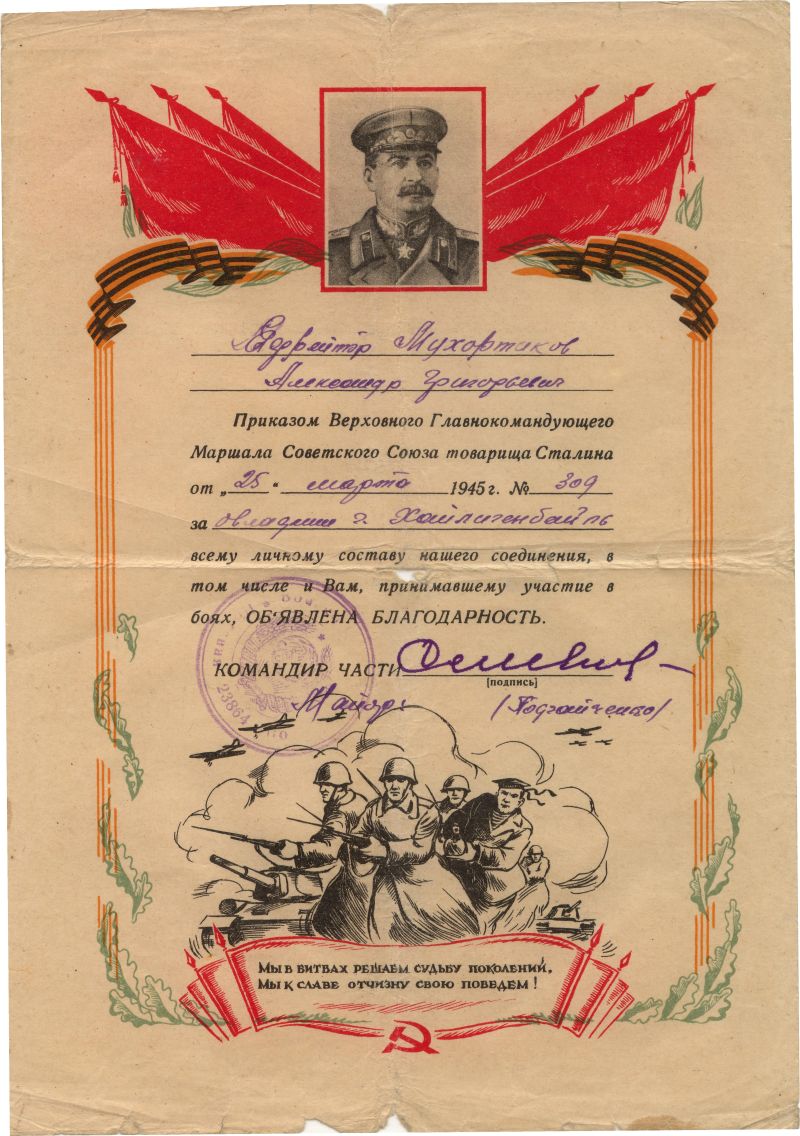 Ефрейтор Мухортиков
Александр Григорьевич
Приказом Верховного Главнокомандующего
Маршала Советского Союза товарища Сталина
от „25“ марта 1945 г. № 309
за овладение г. Хайлигенбайль
всему личному составу нашего соединения, в
том числе и Вам, принимавшему участие в
боях, ОБ'ЯВЛЕНА БЛАГОДАРНОСТЬ.
КОМАНДИР ЧАСТИ
[подпись]
Майор
23864
МЫ В БИТВАХ РЕШАЕМ СУДЬБУ ПОКОЛЕНИЙ,
МЫ К СЛАВЕ ОТЧИЗНУ СВОЮ ПОВЕДЕМ!